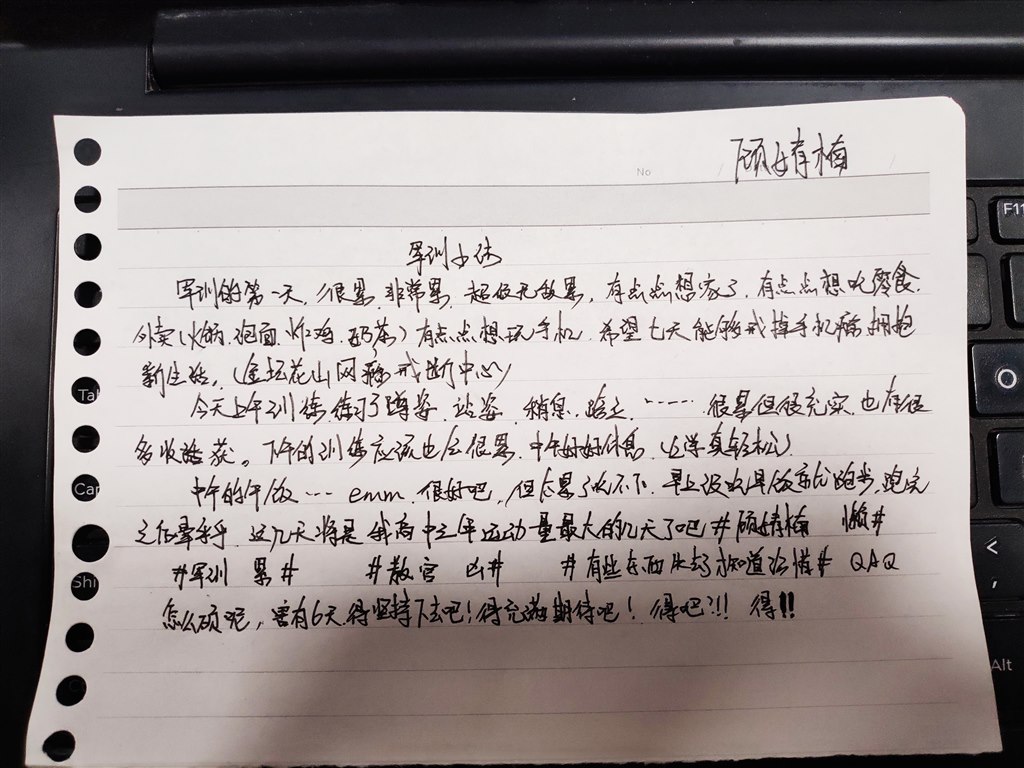 No
顾婧楠
军训小结
军训的第一天,很累,非常累,超级无敌累,有点点想家了,有点点想吃零食,
外卖(火锅、泡面、炸鸡、奶茶)有点点想玩手机,希望七天能够戒掉手机瘾拥抱
新生活,(金坛花山网瘾戒断中心)
今天上午训练练习了蹲姿、站姿、稍息、跨立、…… 很累但很充实,也有很
多收获。下午的训练应该也会很累,中午好好休息,
中午的午饭… emm 很好吧,但太累了吃不下,早上没吃早饭就跑步,跑完
之后晕乎乎,这几天将是我高中三年运动量最大的几天了吧#顾婧楠 懒#
#军训 累# #教官 凶# #有些东西失去了才知道珍惜# QAQ
怎么硕呢,要有6天,得坚持下去吧!得充满期待吧!得吧?!! 得!!
F11
Tal
Cap
Shi
Alt